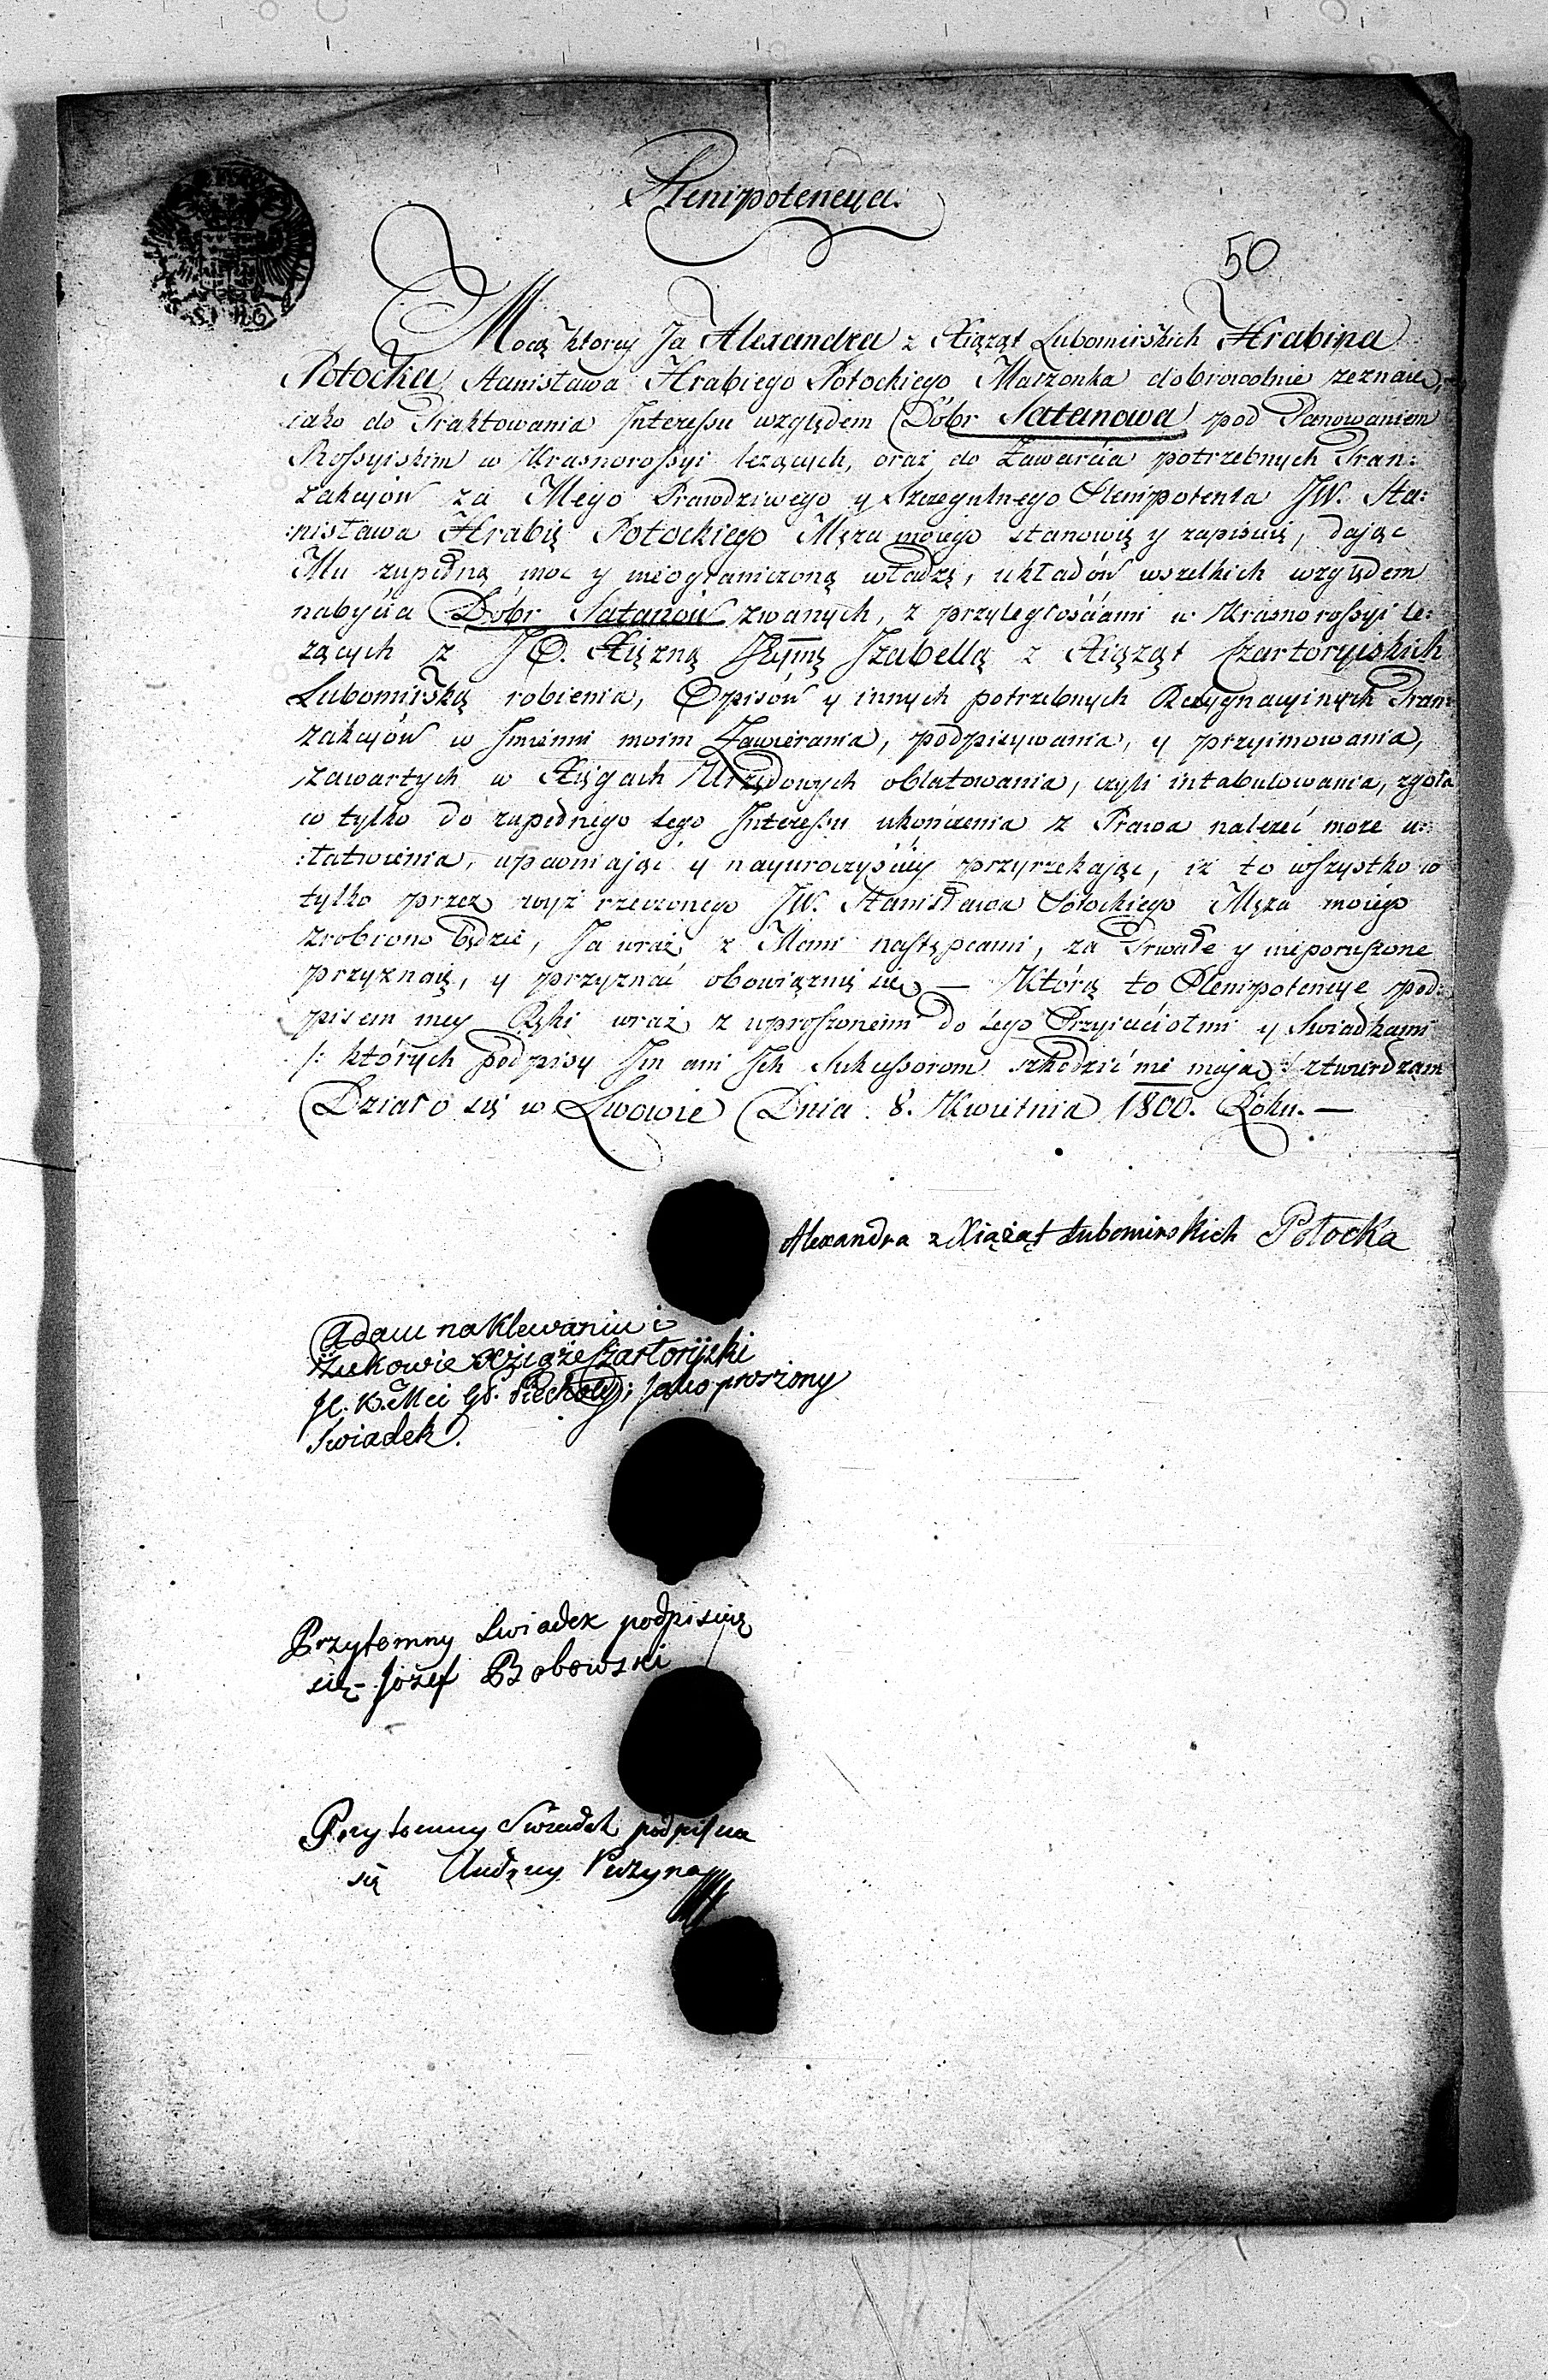 Plenipotencya.
50
Mocą ktorey Ja Alexandra z Xiąząt Lubomirskich Hrabina
Potocka, Stanisława Hrabiego Potockiego Małzonka dobrowolnie zeznaię,
iako do Traktowania Interessu względem Dóbr Satanowa pod Panowaniem
Rossyiskim w Krasnorossyi lezących, oraz do Zawarcia potrzebnych Tran:
zakcyów za Mego Prawdziwego y Szczegulnego Plenipotenta JW. Sta:
:nisława Hrabię Potockiego Męza moiego stanowię y zapisuię, dając
Mu zupełną moc y nieograniczoną władzę, układów wszelkich względem
nabycia Dóbr Satanów zwanych, z przyległościami w Krasnorossyi le:
zących z J.O. Xięzną Jeymę Izabellą z Xiąząt Czartoryiskich
Lubomirską robienia, Opisów y innych potrzebnych Rezygnacyinych Tran:
zakcyów w Imieniu moim Zawierania, podpisywania, y przyimowania,
zawartych w Xięgach Urzędowych oblatowania, czyli intabulowania, zgoła
co tylko do zupełnego tego Interessu ukończenia z Prawa nalezeć moze u:
:łatwienia, upewniając y nayuroczyściey przyrzekając, iz to wszystko co
tylko przez wyż rzeczonego JW. Stanisława Potockiego Męza moiego
zrobiono będzie, Ja wraz z Memi następcami, za Trwałe y nieporuszone
przyznaię, y przyznać obowiązuię się — Którą to Plenipotencye pod:
pisem mey Ręki wraz z uproszonemi do tego Przyiaciołmi y Swiadkami
/: których podpisy Im ani Ich Sukcessorom szkodzić nie maią :/ stwierdzam
Działo się w Lwowie Dnia 8. Kwietnia 1800. Roku. —
Alexandra z Xiążąt Lubomirskich Potocka
Adam na Klewaniu i
Żukowie Xżiąże Czartoryski
Jako proszony
Swiadek.
Przytomny Swiadek podpisuię
się Jozef Bobowski
Przytomny Swiadek podpisua
się Andrzey Puzyna